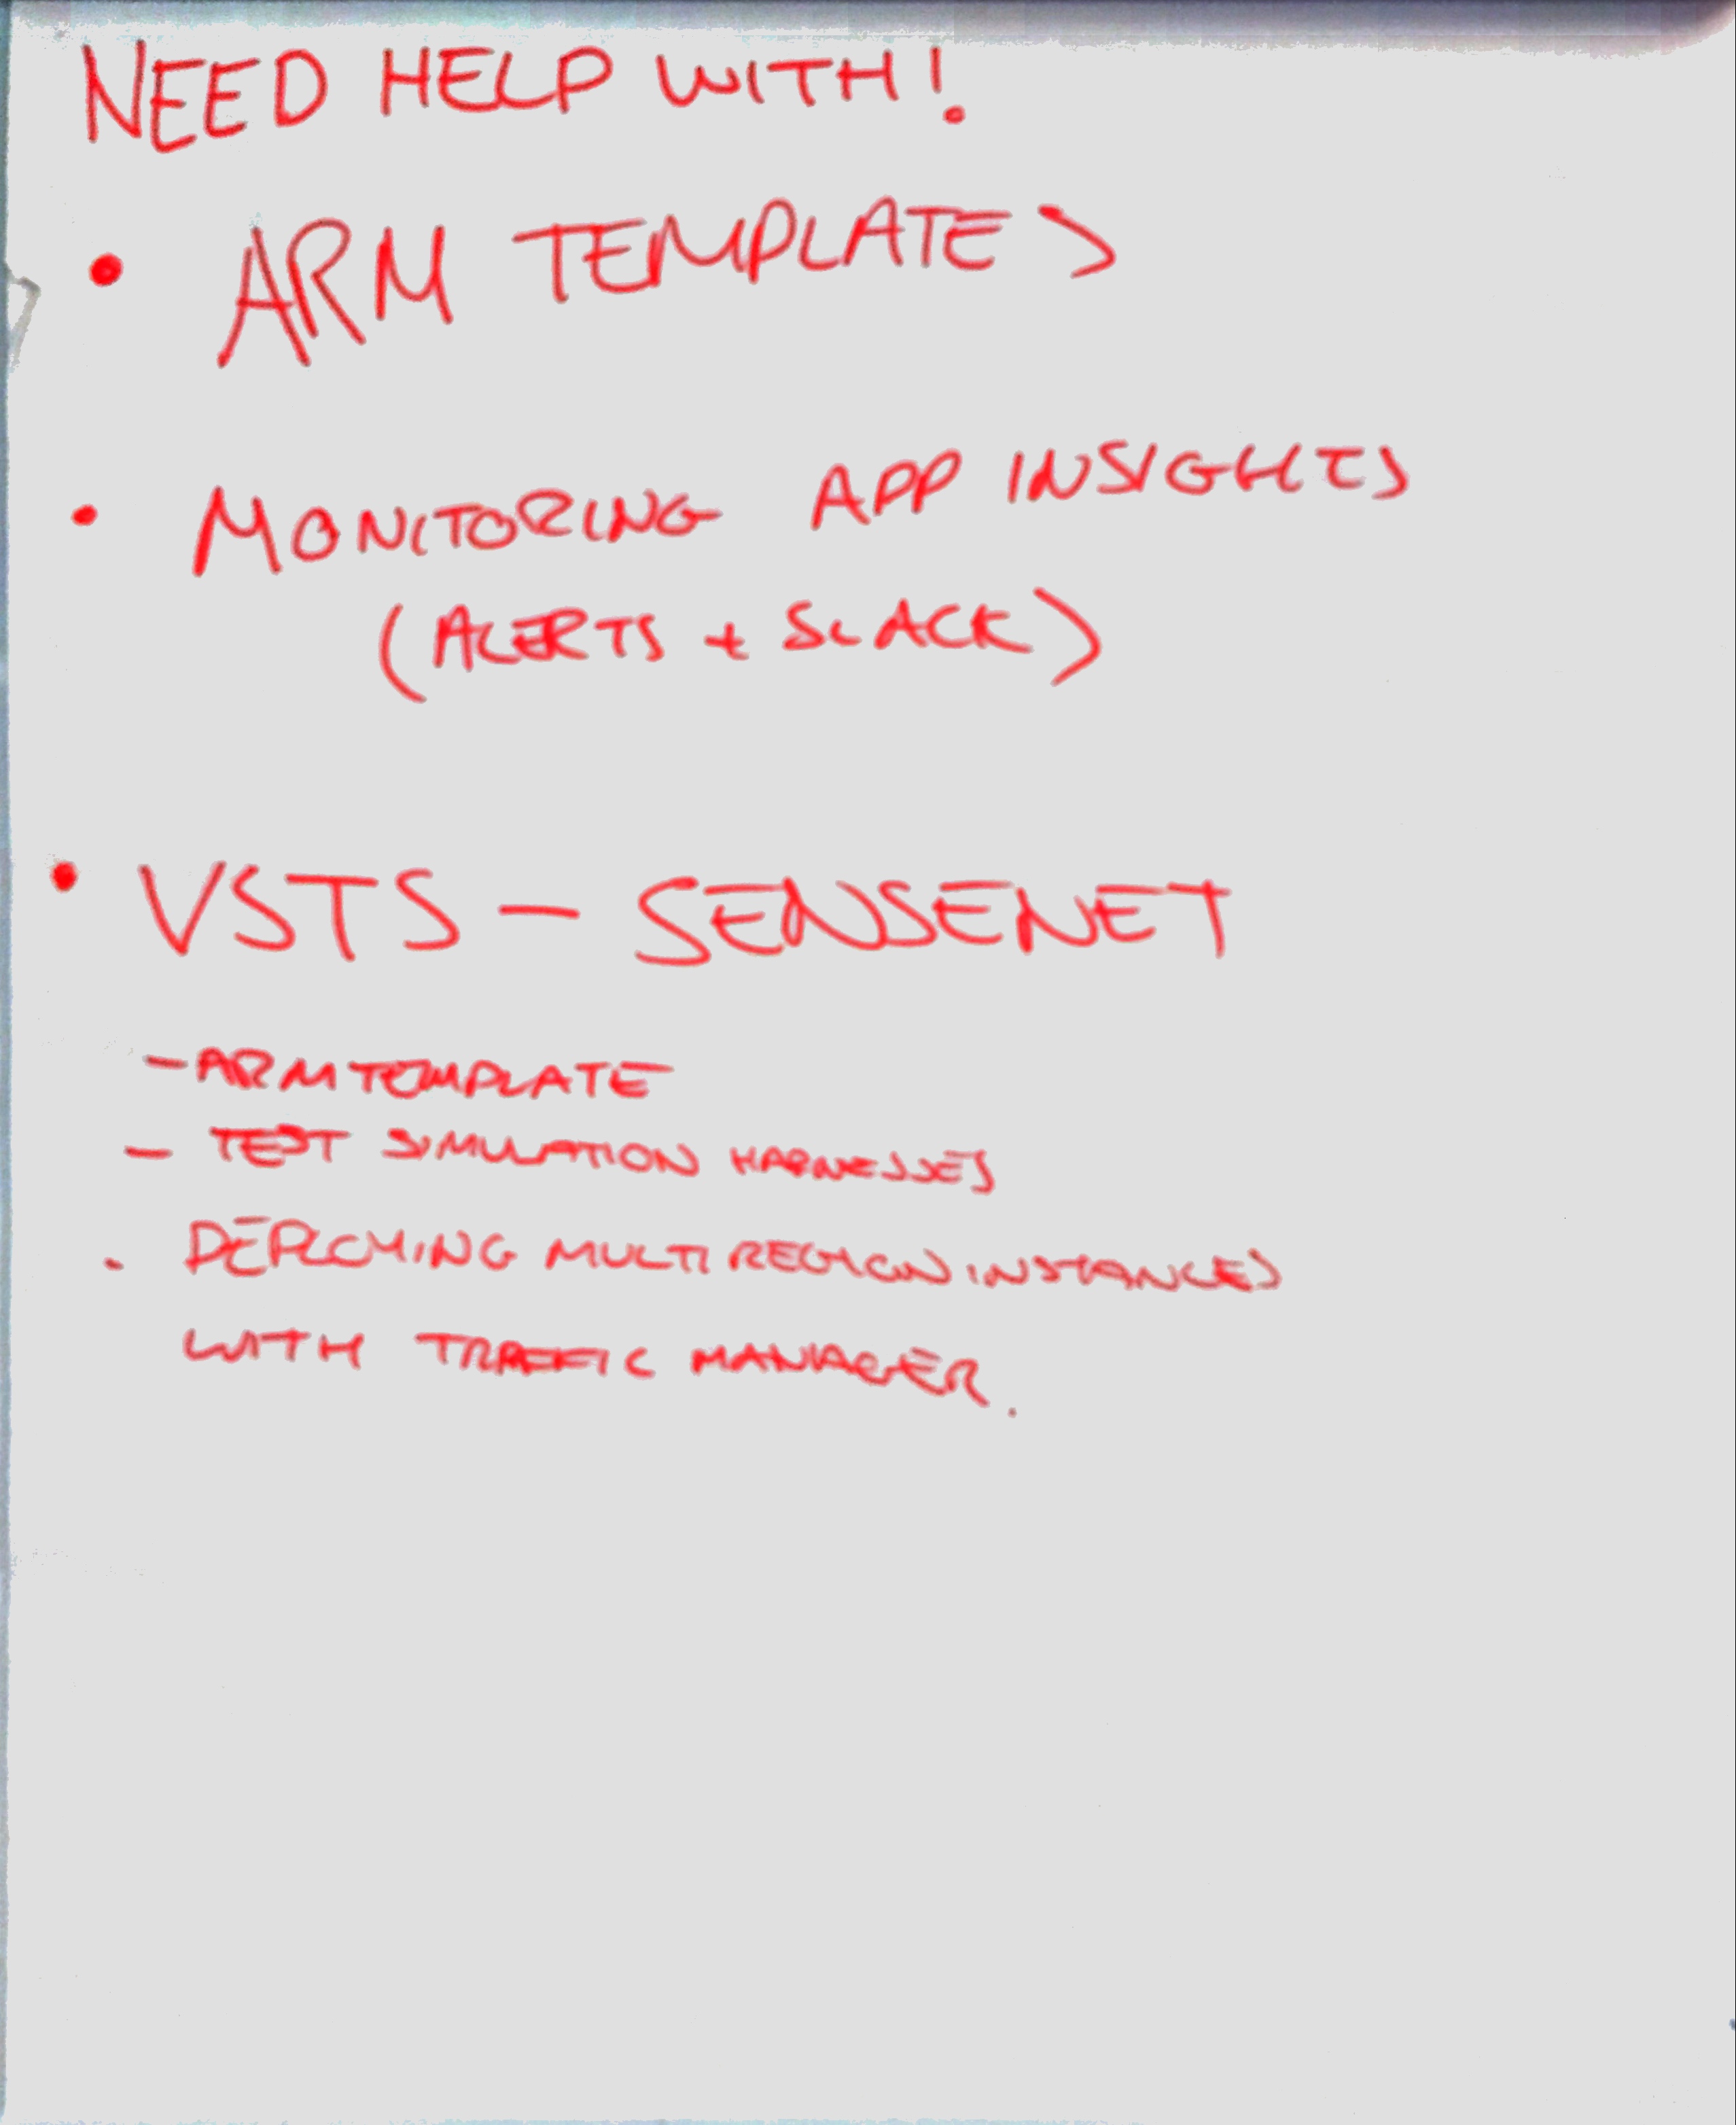 NEED HELP WITH!
• ARM TEMPLATES
• MONITORING APP INSIGHTS
(ALERTS + SLACK)
• VSTS - SENSENET
- ARM TEMPLATE
- TEST SIMULATION HARNESSES
. DEPLOYING MULTI REGION INSTANCES
WITH TRAFFIC MANAGER.